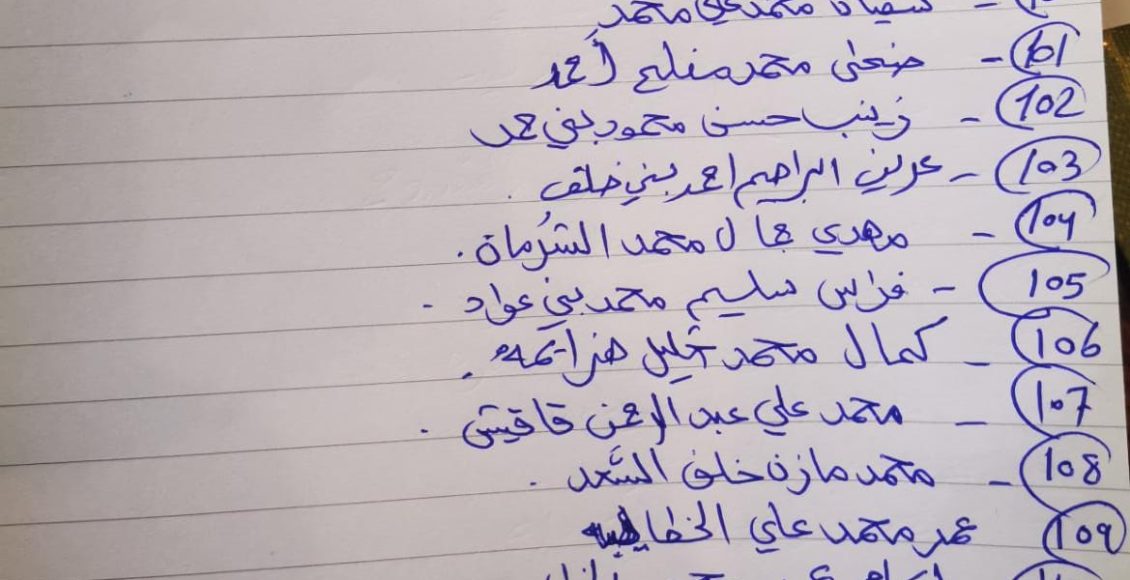 محمد علي محمد
101 - ضحى محمد مفلح أحمد
102 - زينب حسن محمود بني حمد
103 - عرين ابراهيم احمد بني خلف .
104 - مهدي جمال محمد الشرُمان .
105 - فراس سليم محمد بني عواد .
106 - كمال محمد خليل هزايمه .
107 - محمد علي عبد الرحمن قاقيش .
108 - محمد مازن خلف السَّعد .
109 عمر محمد علي الخطايبه